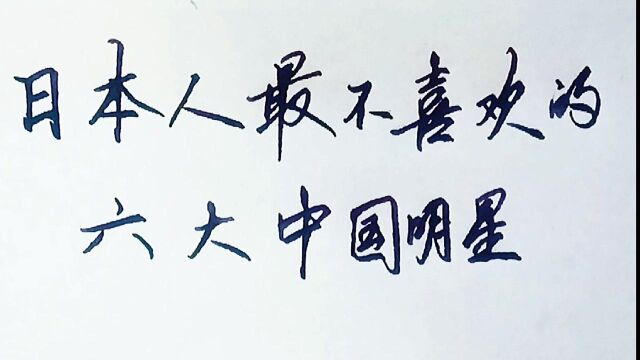 日本人最不喜欢的
六大中国明星